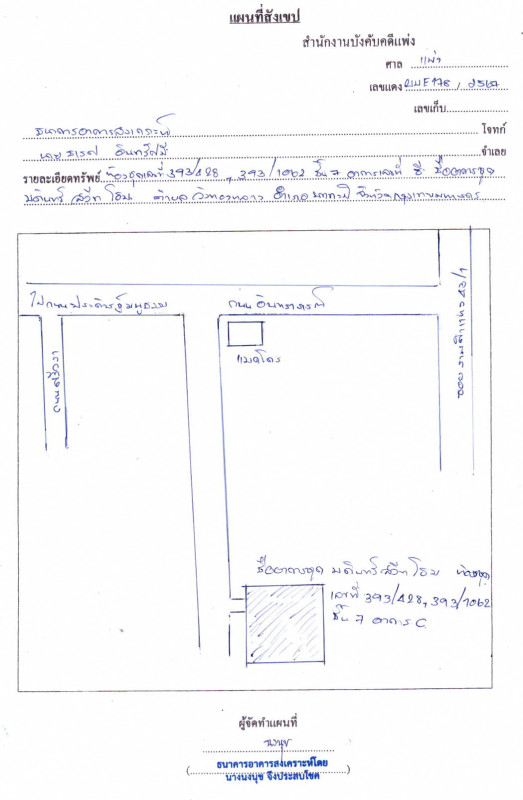 แผนที่สังเขป
สำนักงานบังคับคดีแพ่ง
ศาล แพ่ง
เลขแดง
เลขเก็บ
ธนาคารอาคารสงเคราะห์ โจทก์
จำเลย
รายละเอียดทรัพย์ ห้องชุดเลขที่ 393/428, 393/1062 ชั้น 7 อาคารเลขที่ ซี ชื่ออาคารชุด
สวีท โฮม ตำบล วังทองหลาง อำเภอ บางกะปิ จังหวัดกรุงเทพมหานคร
ไปถนนประดิษฐ์มนูธรรม
ถนน อินทราภรณ์
ซอย รามคำแหง 43/1
ถนนศรีวรา
แมคโคร
ชื่ออาคารชุด สวีท โฮม ห้องชุด
เลขที่ 393/428, 393/1062
ชั้น 7 อาคาร C
ผู้จัดทำแผนที่
นงนุช
ธนาคารอาคารสงเคราะห์โดย
(นางนงนุช จึงประสบโชค)